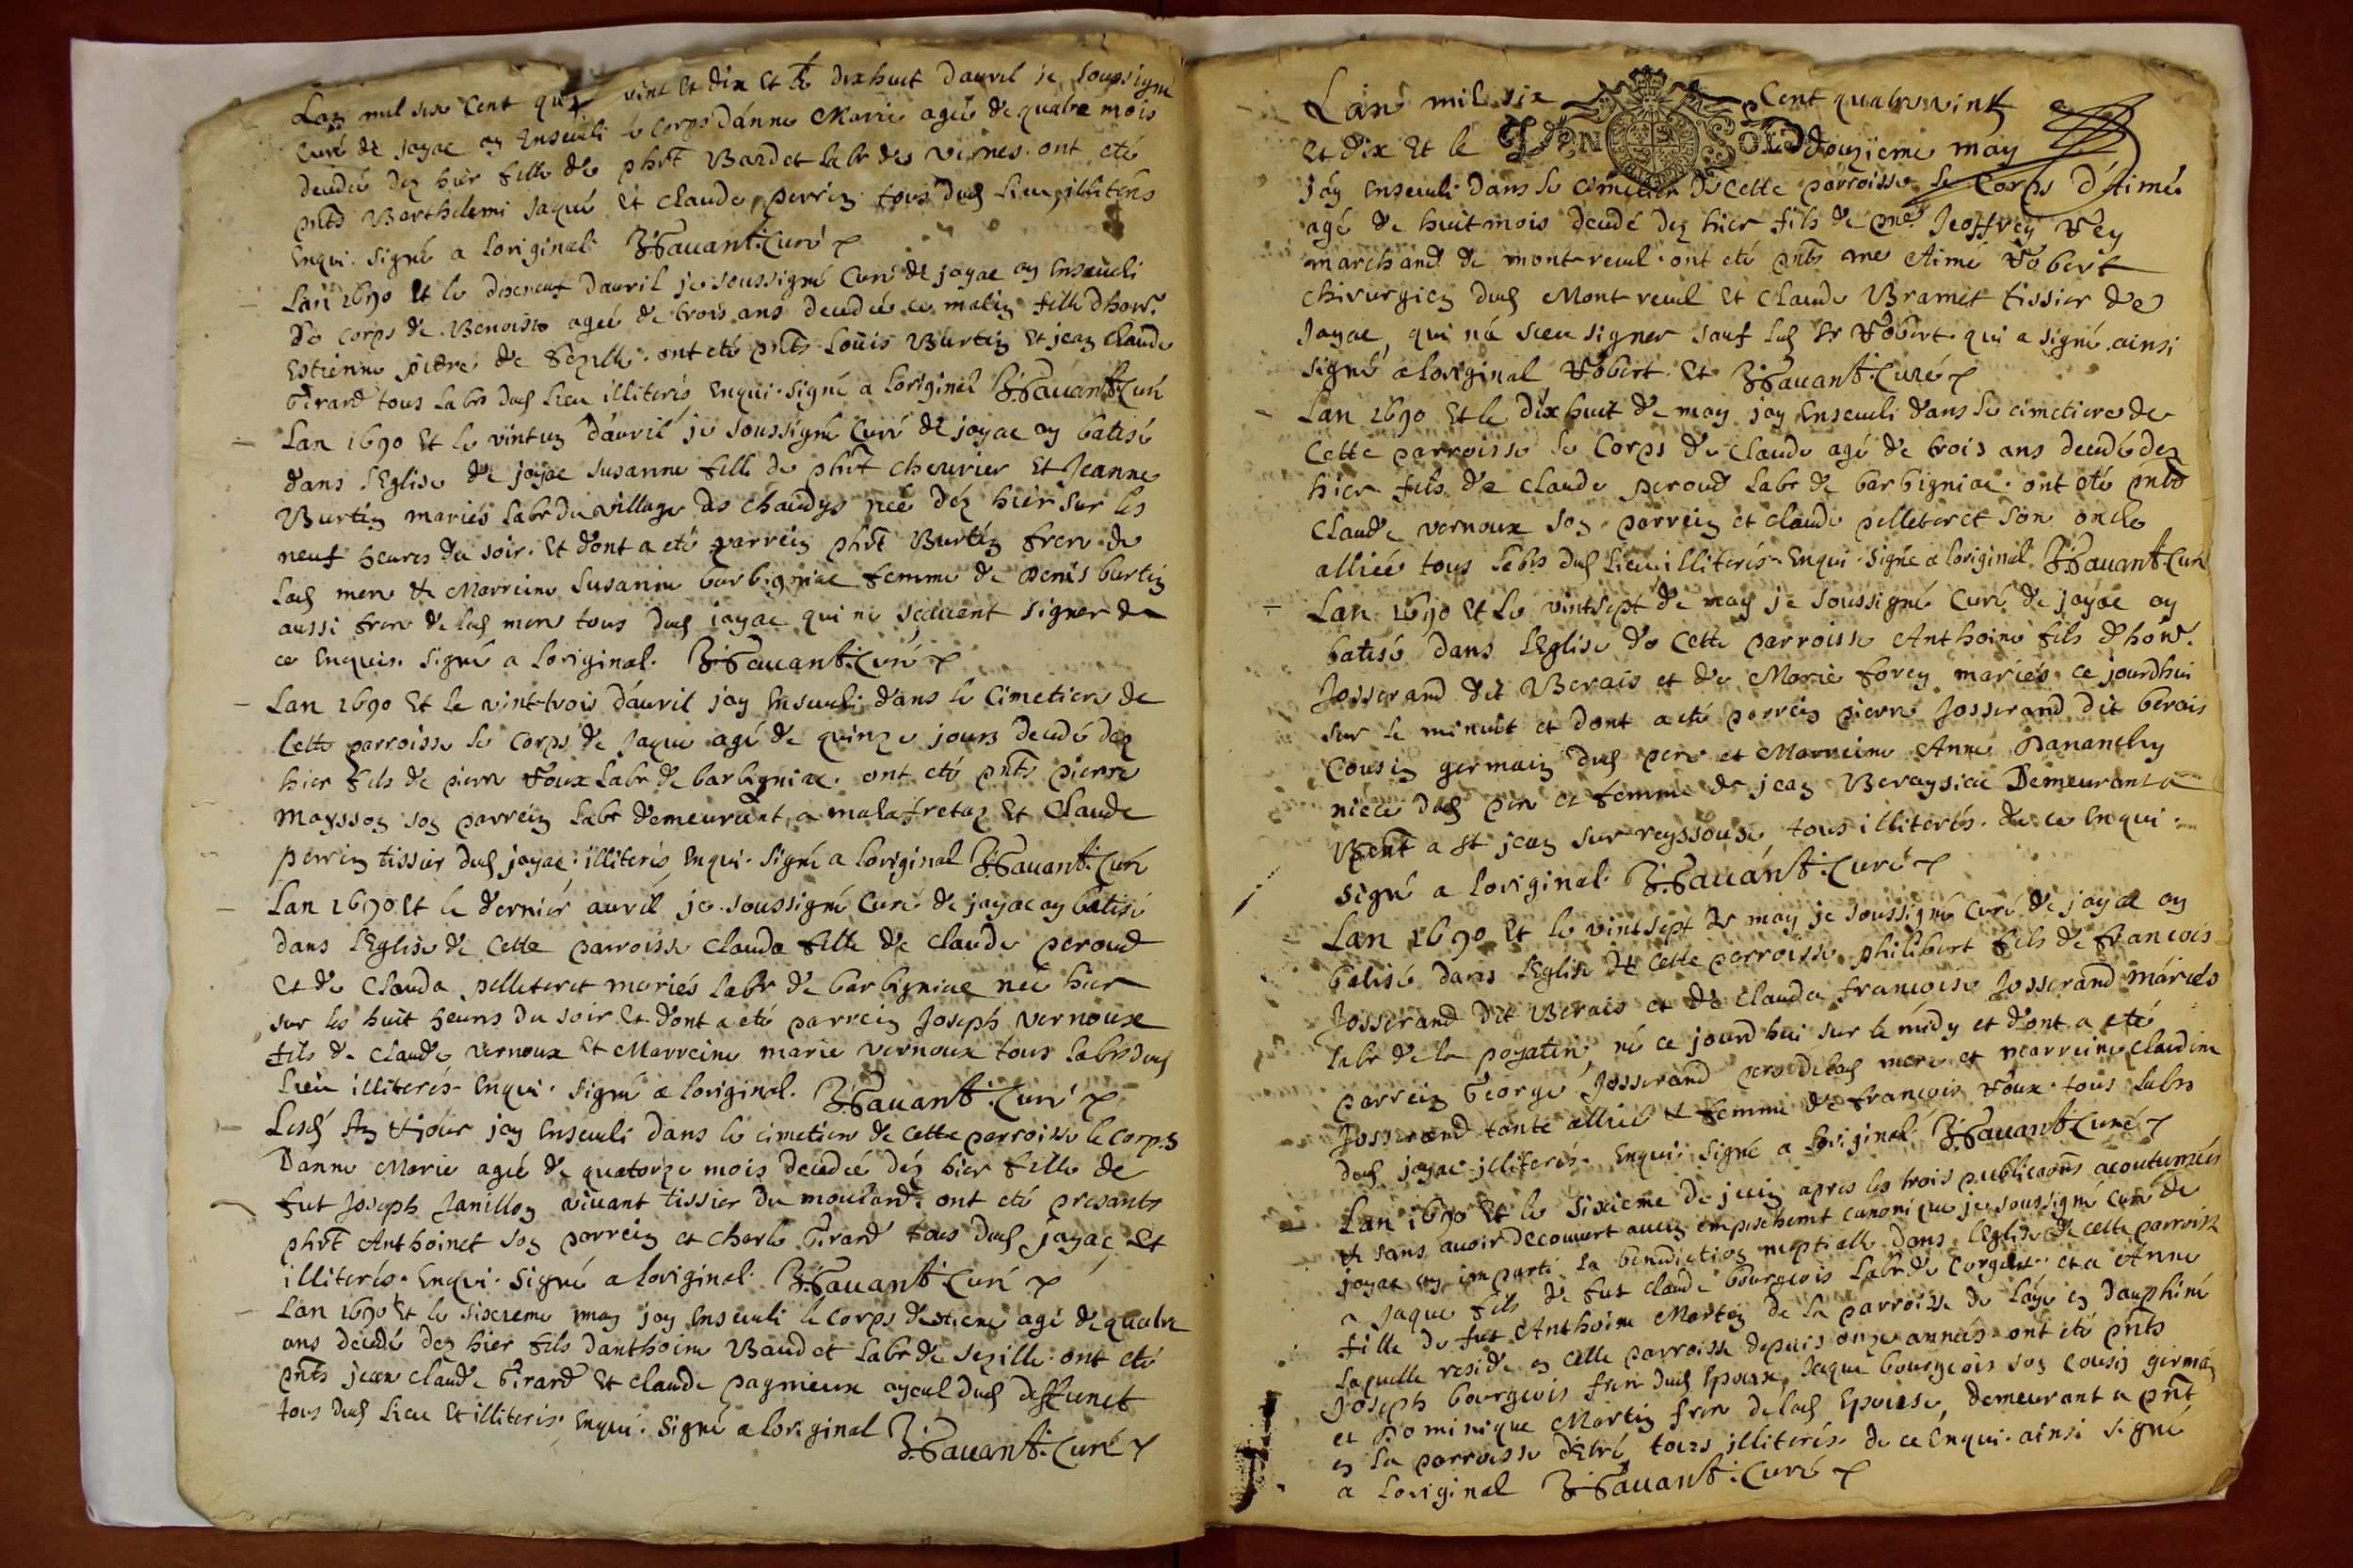 Lan mil six Cent quat vint et dix et le dixhuit dauril je soussigné
Curé de jayac ay Enseueli le corps danne Marie ageé de quatre mois
decedeé dez hier fille de phrt Baudet labr des vernes. ont eté
pnts Barthelemi jaqué et claude perrin tous dud Lieu, illiterés
Enqui. Signé a loriginal. Curé
Lan 1690 et le dixneuf dauril je soussigné Curé de jayac ay Enseueli
le corps de Benoiste ageé de trois ans decedeé ce matin fille dhon.
Estienne de sezille. ont eté pnts Loüis Burtin et jean claude
Girard tous labrs dud Lieu illiterés Enqui. Signé a loriginal Curé
Lan 1690 et le vintun dauril je soussigné Curé de jayac ay batisé
dans lEglise de jayac susanne fille de phrt cheurier et Jeanne
Burtin mariés labr du village des chaudys neé déz hier sur les
neuf heures du soir. et dont a eté parrein phrt Burtin frere de
lad mere & Marreine susanne barbigniac femme de Denis burtin
aussi frere de lad mere tous dud jayac qui ne scauent signer de
ce Enquis. Signé a loriginal. Curé
Lan 1690 et le vint-trois dauril jay Enseueli dans le Cimetiere de
Cette parroisse le corps de jaque agé de quinze jours decedé dez
hier fils de pierre Foux labr de barbigniac. ont eté pnts pierre
maysson son parrein labr demeurant a malafretaz et Claude
perrin tissier dud jayac. illiterés Enqui. Signé a loriginal Curé
Lan 1690 et le dernier auril je soussigné Curé de jayac ay batisé
dans lEglise de Cette parroisse clauda fille de claude peroud
et de Clauda pelleteret mariés labr de barbigniac neé hier
sur les huit heures du soir et dont a eté parrein Joseph vernoux
fils de claude vernoux et Marreine marie vernoux tous labrs dud
Lieu illiterés Enqui. Signé a loriginal. Curé
Lesd An & jour jay Enseueli dans le cimetiere de cette parroisse le corps
Danne Marie ageé de quatorze mois decedeé déz hier fille de
fut Joseph Janillon viuant tissier du moulard. ont eté presants
phrt Anthoinet son parrein et charle Girard tous dud jayac et
illiterés. Enqui. Signé a loriginal. Curé
Lan 1690 et le sixieme may jay Enseueli le corps destiene agé de quatre
ans decedé dez hier fils danthoine Baudet labr de sezille. ont eté
pnts jean claude Girard et claude pagneux ayeul dud deffunct
tous dud Lieu et illiterés. Enqui. Signé a loriginal
Curé
Lan mil six Cent quatre vint
et dix et le GEN SOLD douzieme may
jay Enseueli dans le cimetiere de cette parroisse le Corps dAimé
agé de huit mois decedé dez hier fils de me Jeoffrey Fey
marchand de mont-reuel. ont eté pnts me Aimé Fobert
chirurgien dud Mont reuel et claude Bramet tissier de
Jayac, qui na sceu signer sauf led Sr Fobert qui a signé ainsi
signé a loriginal Fobert. et Curé
Lan 1690 et le dix huit de may jay Enseueli dans le cimetiere de
Cette parroisse le Corps de claude agé de trois ans decedé dez
hier fils de claude peroud labr de barbigniac. ont eté pnts
Claude vernoux son parrein et claude pelleteret son oncle
allieé tous labrs dud Lieu illiterés Enqui. Signé a loriginal. Curé
Lan 1690 et le vintsept de may je soussigné Curé de jayac ay
batisé dans lEglise de cette parroisse Anthoine fils dhon.
Josserand dit Berais et de Marie forey mariés ce jourdhui
sur le minuit et dont a eté parrein pierre Josserand dit berais
Cousin germain dud pere et Marreine Anne Pananchy
niece dud pere et femme de jean Beraysiac Demeurant a
pent a st jean sur reyssouse, tous illiterés. de ce Enqui.
signé a loriginal. Curé
Lan 1690 et le vintsept de may je soussigné curé de jayac ay
batisé dans lEglise de cette parroisse philibert fils de francois
Josserand dit Berais et de clauda francoise Josserand mariés
labr de la poyatiere né ce jourdhui sur le midy et dont a eté
parrein George Josserand pere de lad mere et marreine claudine
Josserand tante allieé et femme de francois Foux. tous labrs
dud jayac illiterés. Enqui. Signé a loriginal. Curé
Lan 1690 et le sixieme de juin apres les trois publicaons acoutumeés
& sans auoir decouvert aucun empeschemt canonique je soussigné Curé de
jayac ay imparti la benediction nuptialle dans lEglise de cette parroisse
a jaque fils de fut claude bourgeois labr de et a Anne
fille de fut Anthoine Martin de la parroisse de laye en dauphiné
laquelle reside en cette parroisse depuis onze anneés. ont eté pnts
Joseph bourgeois frere dud Epoux, jaque bourgeois son cousin germain
et Dominique Martin frere de lad Epouse, demeurant a pnt
en la parroisse tous illiterés de ce Enqui. ainsi signé
a loriginal Curé